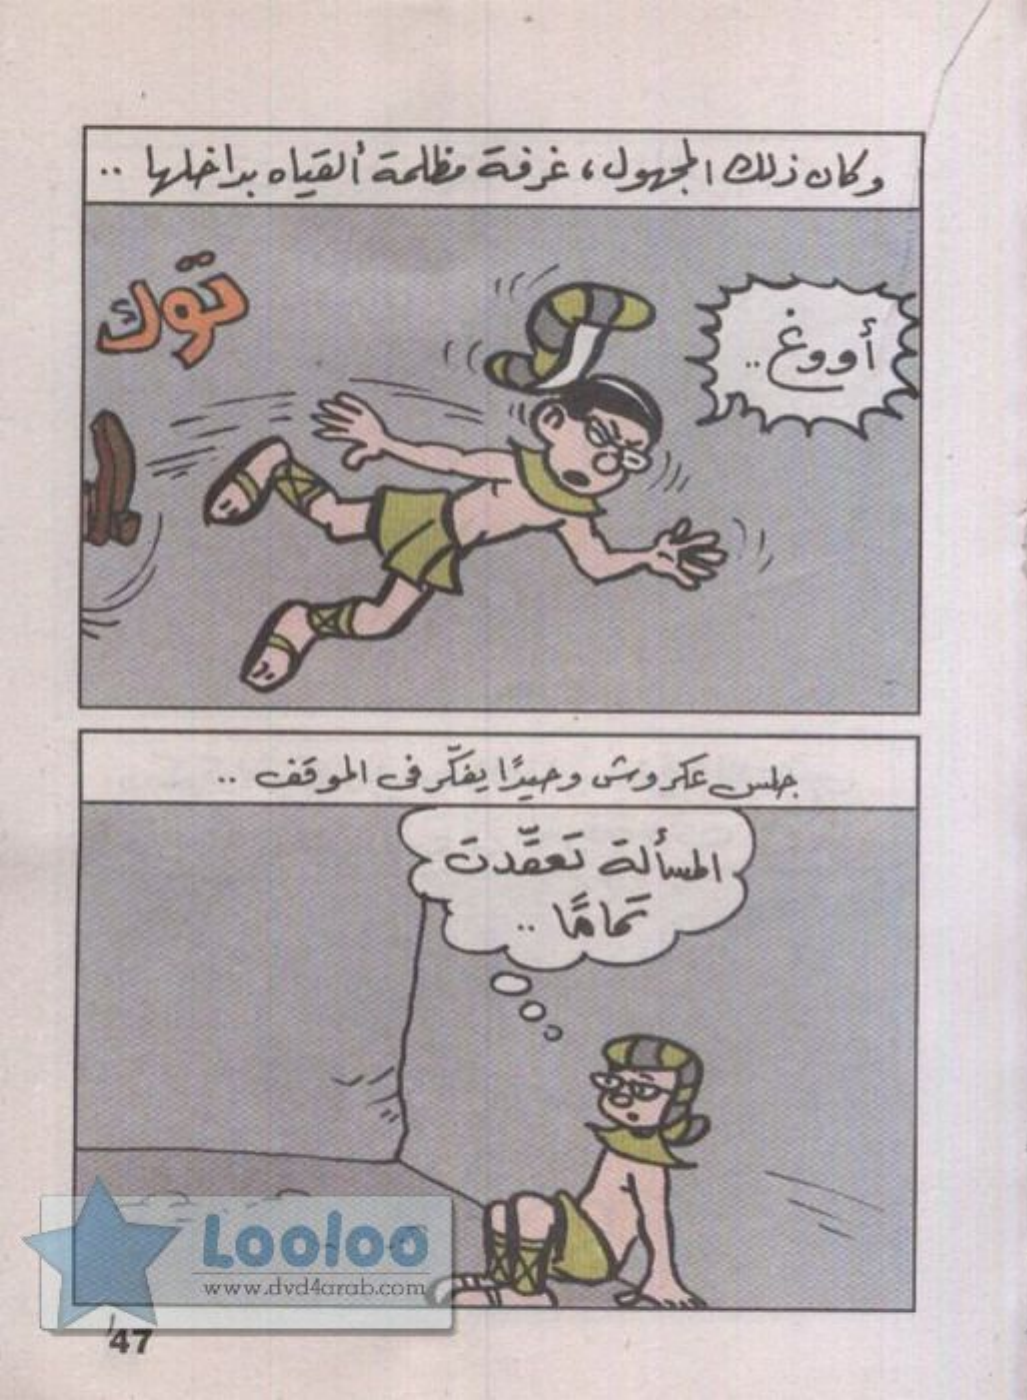 وكان ذلك المجهول، غرفة مظلمة ألقياه بداخلها ..
أووغ ..
توك
جلس عكروش وحيدًا يفكّر في الموقف ..
المسألة تَعقّدت
تمَامًا ..
Looloo
www.dvd4arab.com
47